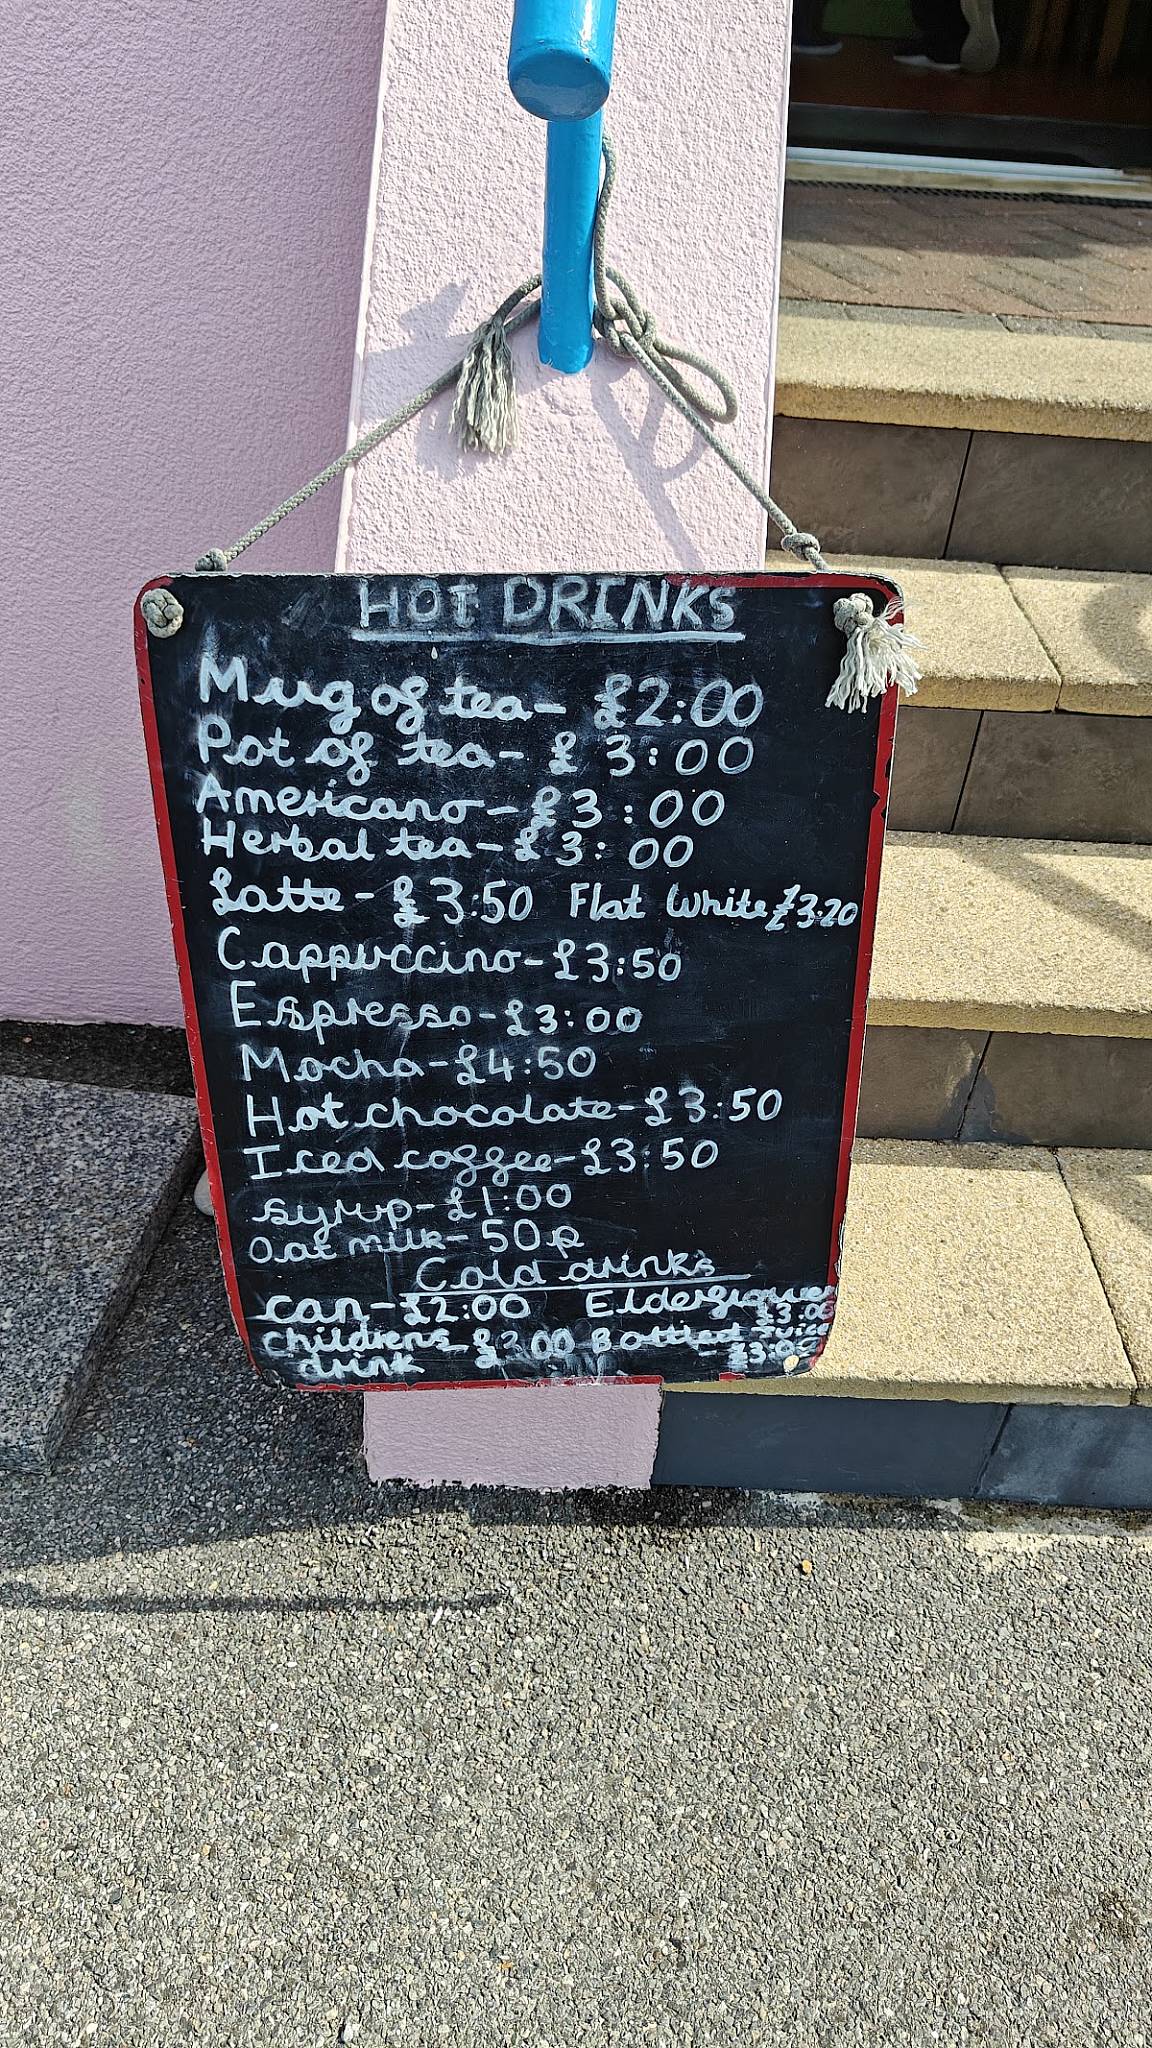 HOT DRINKS
Mug of tea- £2:00
Pot of tea- £3:00
Americano - £3:00
Herbal tea - £3:00
Latte - £3:50 Flat White £3.20
Cappuccino - £3:50
Espresso - £3:00
Mocha - £4:50
Hot chocolate - £3:50
Iced coffee - £3:50
syrup - £1:00
Oat milk - 50p
Cold drinks
can - £2:00 Elderflower £3:00
Childrens drink £2:00 Bottled Juice £3:00